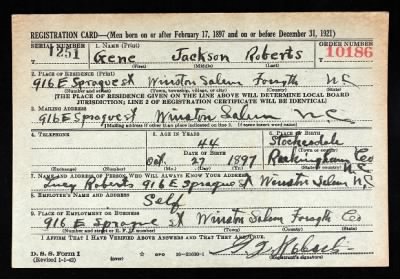 REGISTRATION CARD—(Men born on or after February 17, 1897 and on or before December 31, 1921)
SERIAL NUMBER 1. NAME (Print) ORDER NUMBER
T 251 Gene Jackson Roberts 10186
(First) (Middle) (Last)
2. PLACE OF RESIDENCE (Print)
916 E Sprague St Winston Salem Forsyth N C
(Number and street) (Town, township, village, or city) (County) (State)
[THE PLACE OF RESIDENCE GIVEN ON THE LINE ABOVE WILL DETERMINE LOCAL BOARD
JURISDICTION; LINE 2 OF REGISTRATION CERTIFICATE WILL BE IDENTICAL]
3. MAILING ADDRESS
916 E Sprague St Winston Salem N C
[Mailing address if other than place indicated on line 2. If same insert word same]
4. TELEPHONE 5. AGE IN YEARS 6. PLACE OF BIRTH
44 Stokesdale
DATE OF BIRTH (Town or county)
Oct. 27 1897 Rockingham Co
(Exchange) (Number) (Mo.) (Day) (Yr.) (State or country)
N C
7. NAME AND ADDRESS OF PERSON WHO WILL ALWAYS KNOW YOUR ADDRESS
Lucy Roberts 916 E Sprague St Winston Salem N.C.
8. EMPLOYER'S NAME AND ADDRESS
Self
9. PLACE OF EMPLOYMENT OR BUSINESS
916 E Sprague St Winston Salem Forsyth Co
(Number and street or R. F. D. number) (Town) (County) (State)
I AFFIRM THAT I HAVE VERIFIED ABOVE ANSWERS AND THAT THEY ARE TRUE.
D. S. S. Form 1
(Revised 1-1-42) (over) GPO 16—21630-1 (Registrant's signature)